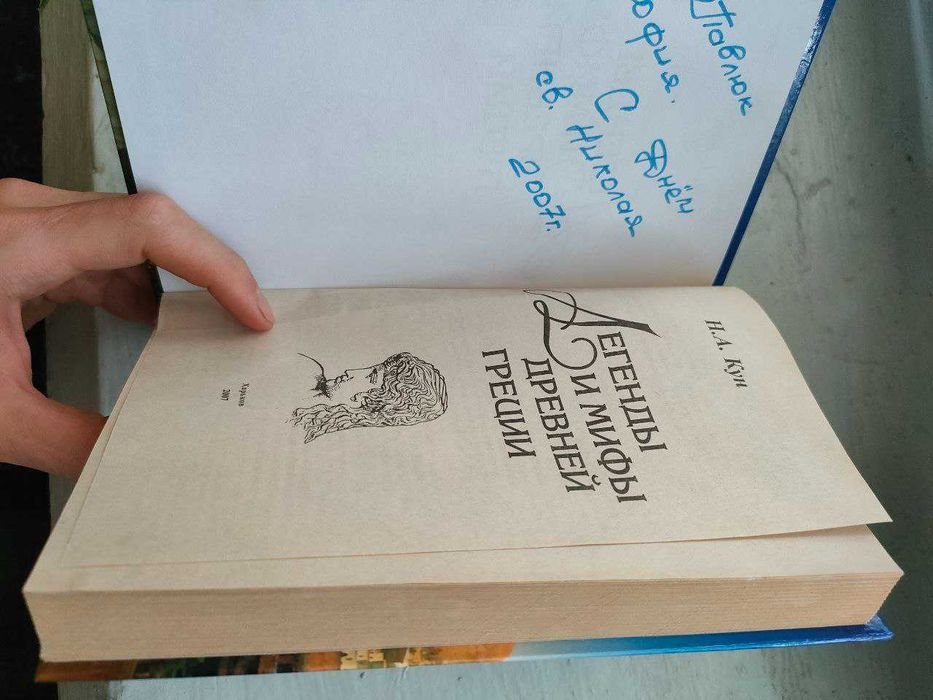 Павлюк
офия.
С Днём
св. Николая
2007г.
Н.А. Кун
ЛЕГЕНДЫ
И МИФЫ
ДРЕВНЕЙ
ГРЕЦИИ
Харьков
2007